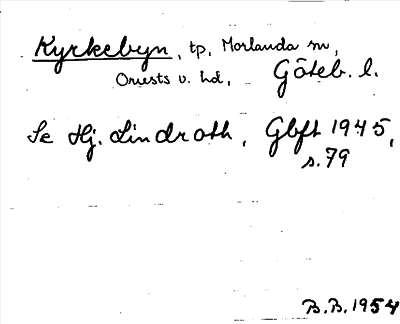 Kyrkebyn, tp, Morlanda sn,
Orusts v. hd, Göteb. l.
Se Hj. Lindroth, Gbft 1945,
s. 79
B.B. 1954